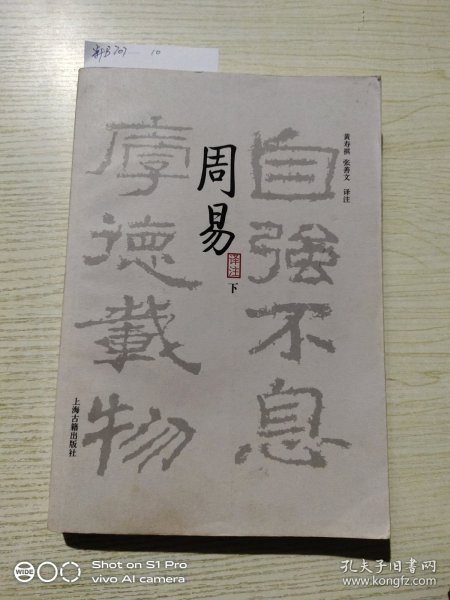 自強不息
厚德載物
周易
譯注
下
黄寿祺 张善文 译注
上海古籍出版社
10
Shot on S1 Pro
vivo AI camera
WIDE
孔夫子旧书网
www.kongfz.com